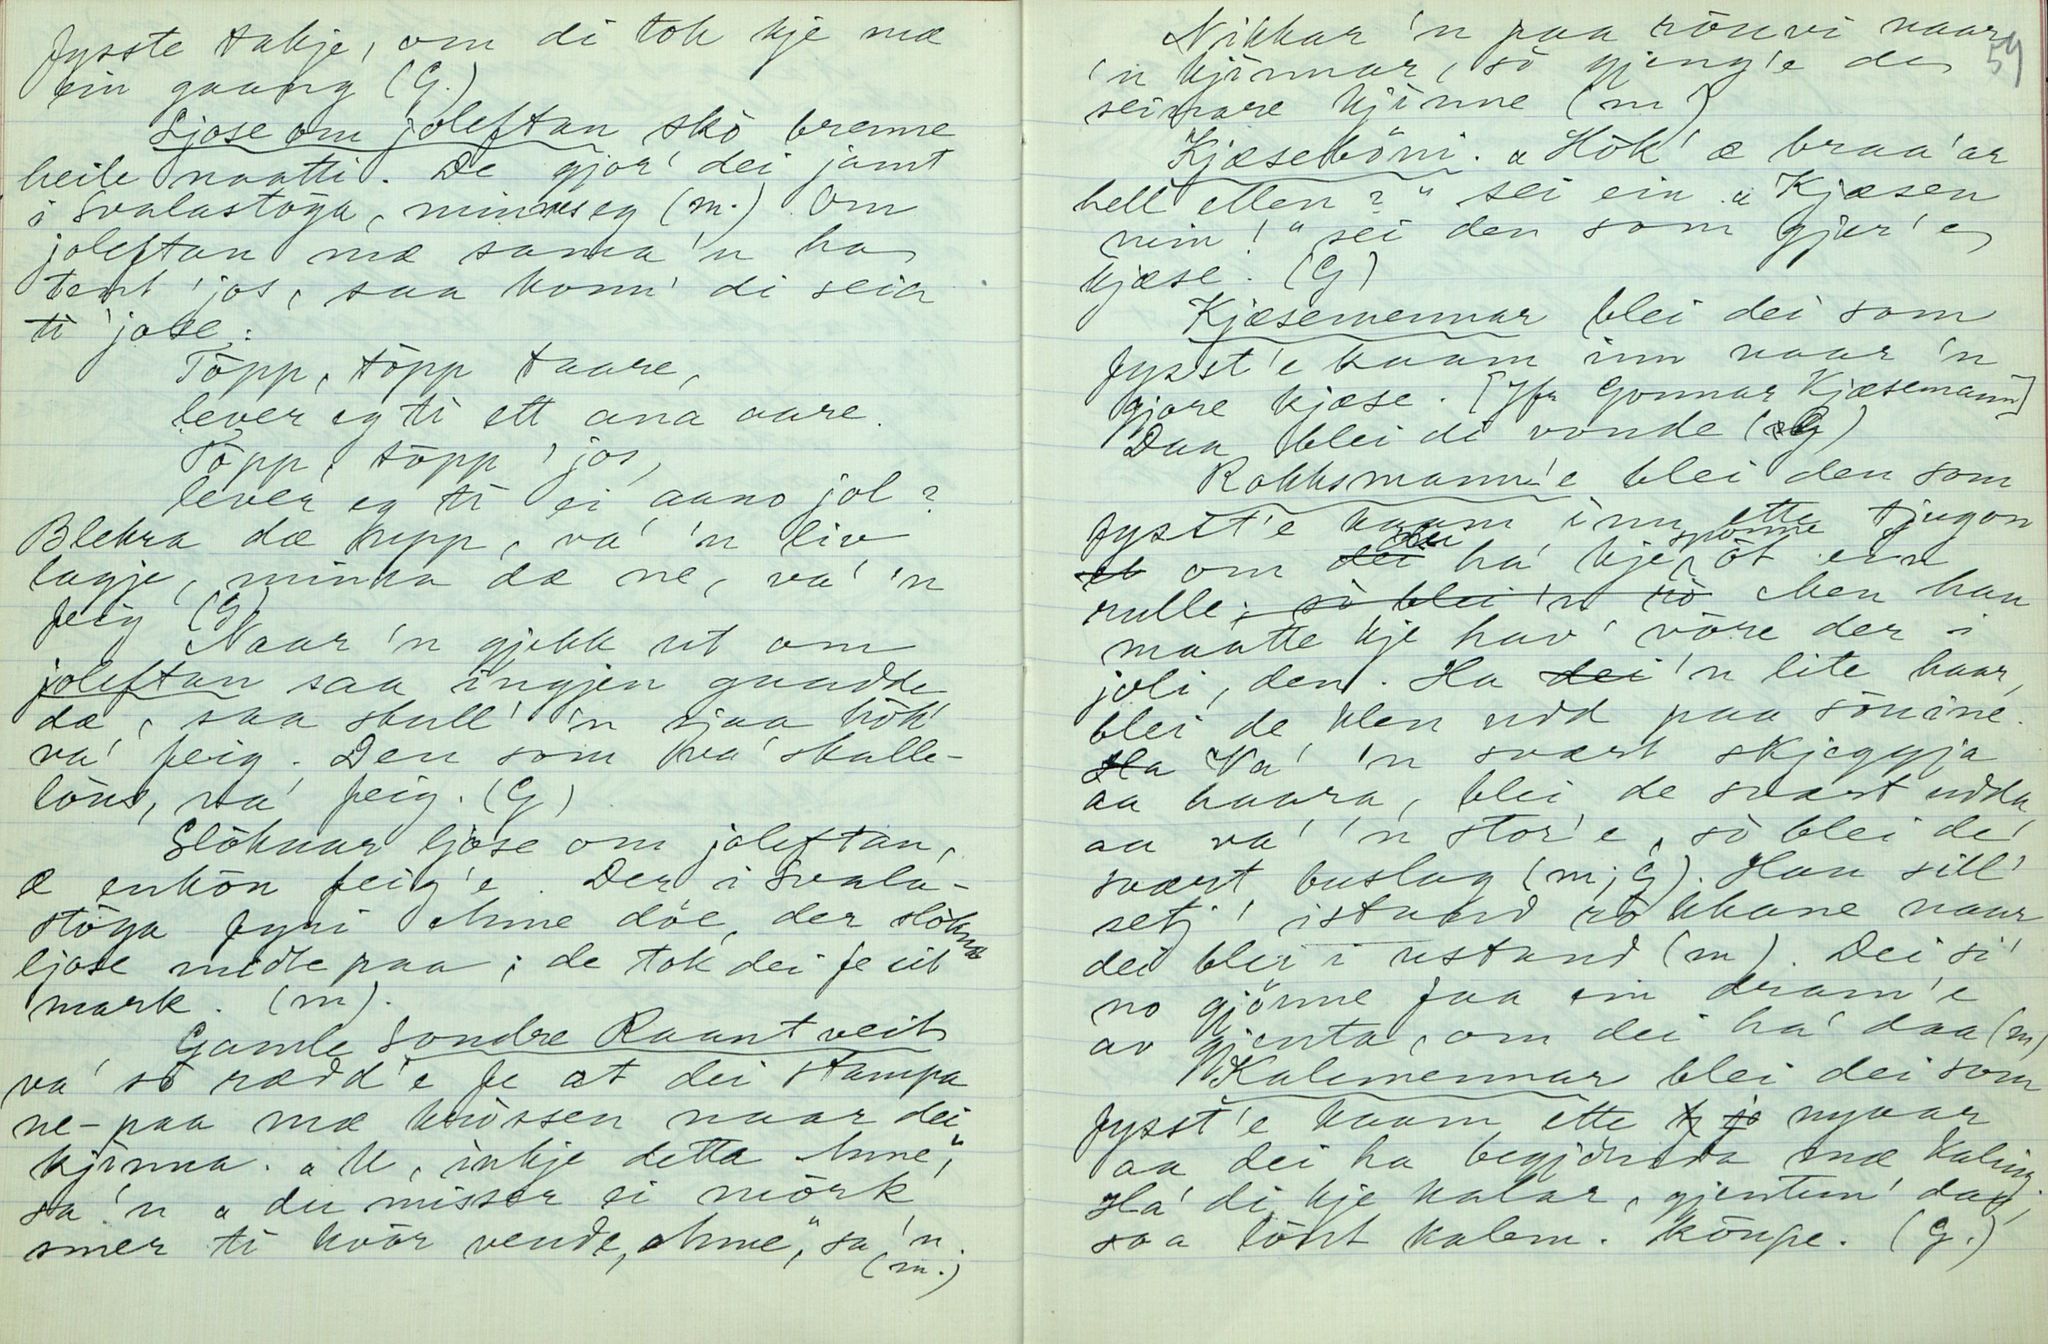 fysste takje, om di tok kje mæ
ein gaang (G.)
Ljose om joleftan skò brenne
heile naatti. De gjor' dei jamt
i Svalastoga, minnes eg (m.) Om
joleftan mæ sama 'n ha
tent 'jos, saa konn' di seia
ti 'jose:
Töpp, töpp taare,
lever eg ti ett ana aare.
Töpp, töpp 'jos,
lever eg ti ei aano jol?
Blekra dæ upp, va' 'n liv
lagje, minka dæ ne, va' 'n
feig (G)
Naar 'n gjekk ut om
joleftan saa ingjen gaadde
dæ, saa skull' 'n sjaa hök'
va' feig. Den som va' skalle-
löus, va' feig. (G)
Slöknar ljose om joleftan,
æ enkön feig'e. Der i Svala-
stöga fyri Anne döe, der slökna
ljose midt paa; de tok dei fe eit
mark. (m).
Gamle Sondre Raantveit
va' so rædd'e fe at dei stampa
ne-paa mæ krössen naar dei
kjinna. "U, inkje detta Anne",
sa 'n "du misser ei mörk
smer ti kvör vende, Anne", sa 'n.
(m.)
59
Nikkar 'n paa rönvi naar
'n kjinnar, so gjeng'e de
seinare kjinne (m)
Kjæseböni. "Hök' æ braa'ar
hell ellen?" sei ein. "Kjæsen
min!" sei den som gjer'e
kjæse. (G)
Kjæsemennar blei dei som
fysst'e kaam inn naar 'n
gjore kjæse. [Jfr Gonnar Kjæsemann]
Daa blei di vonde (G)
Rokksmann'e blei den som
fysst'e kaam inn ette tjugon
et om dei den ha' kje spönne öt ein
rulle; so blei 'n ro Men han
maatte kje hav' vöre der i
joli, den. Ha dei 'n lite haar,
blei de klen udd paa söuine.
Ha Va' 'n svært skjeggja
aa haara, blei de svært udda,
aa va' 'n stor'e, so blei de'
svært buslag (m; G). Han sill'
setj' istand rokkane naar
dei blei i ustand (m). Dei si'
no gjönne faa ein dram'e
av gjenta, om dei ha' daa (m)
Kalemennar blei dei som
fysst'e kaam ette h jo nyaar
aa dei ha begjönna mæ kaling.
Ha' di kje kalar, gjentun' daa,
saa lönt kalem. köupe. (G.)